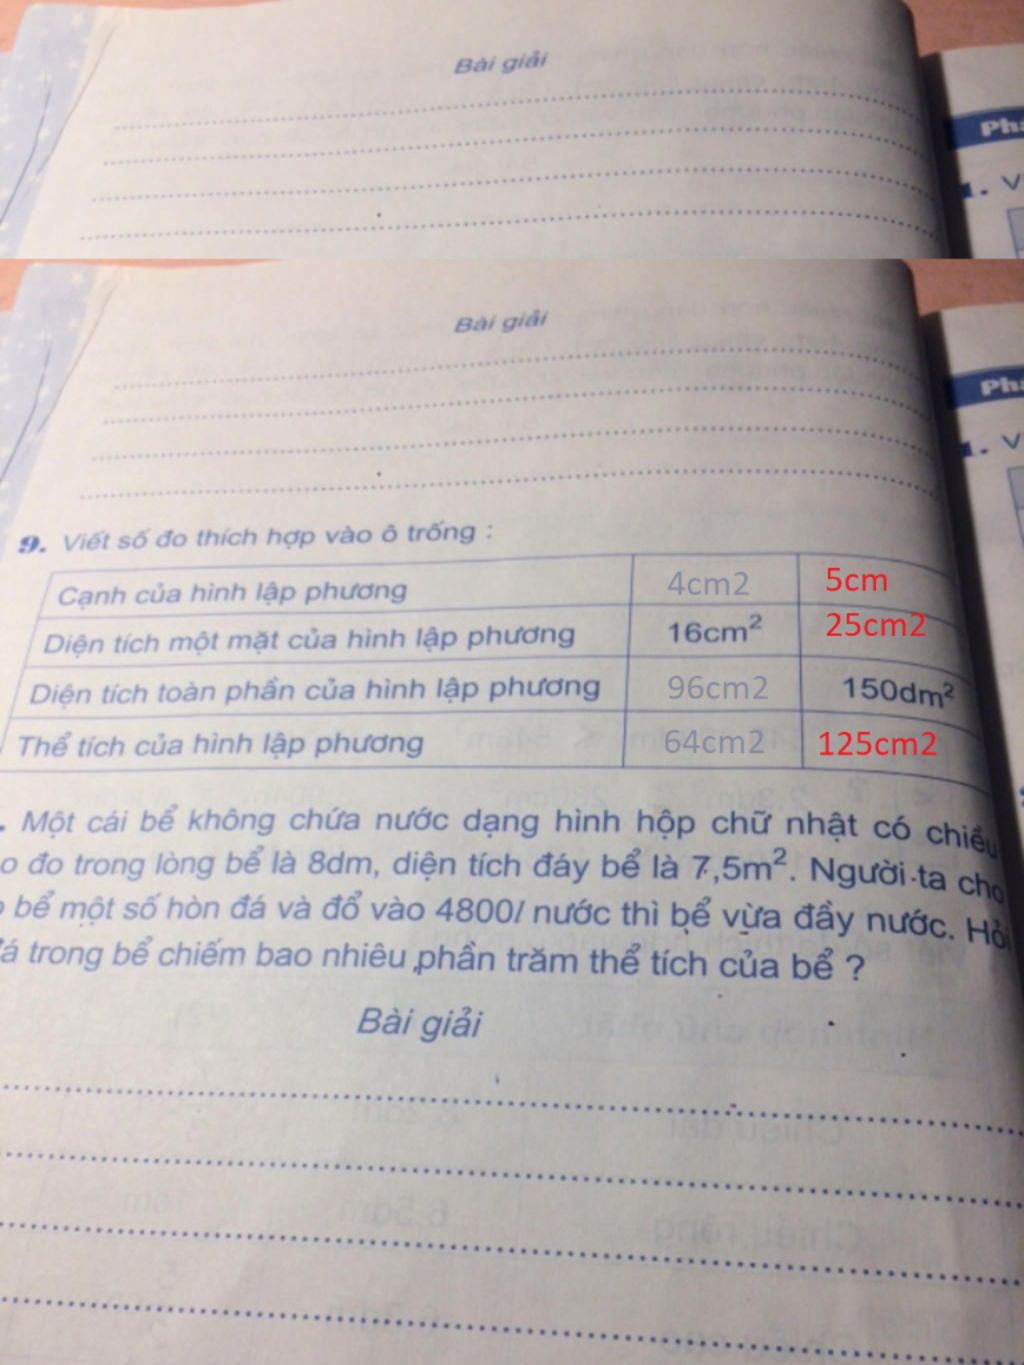 Bài giải
Phầ
1. V
Bài giải
Phầ
1. V
9. Viết số đo thích hợp vào ô trống :
Cạnh của hình lập phương 4cm2 5cm
Diện tích một mặt của hình lập phương 16cm² 25cm2
Diện tích toàn phần của hình lập phương 96cm2 150dm²
Thể tích của hình lập phương 64cm2 125cm2
. Một cái bể không chứa nước dạng hình hộp chữ nhật có chiều
o đo trong lòng bể là 8dm, diện tích đáy bể là 7,5m². Người ta cho
o bể một số hòn đá và đổ vào 4800l nước thì bể vừa đầy nước. Hỏi
đá trong bể chiếm bao nhiêu phần trăm thể tích của bể ?
Bài giải